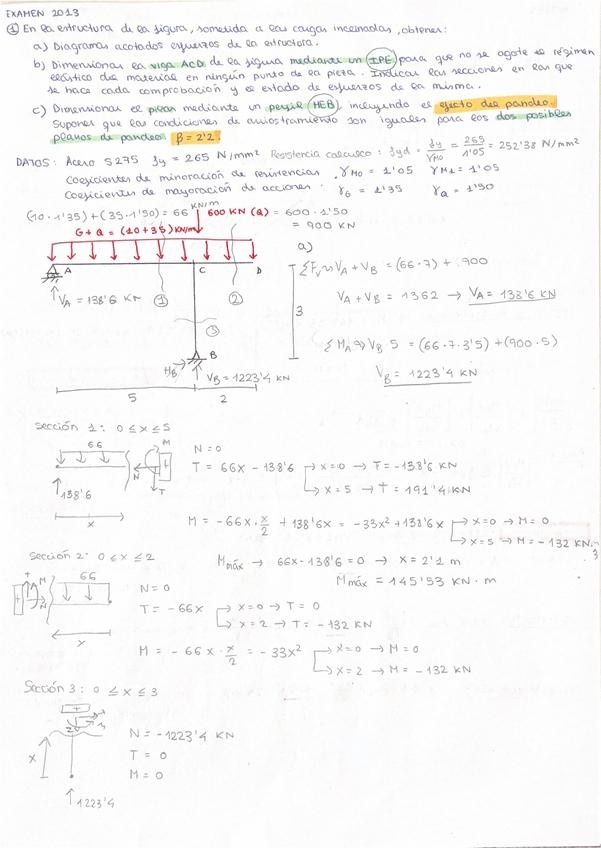 EXAMEN 2013
① En la estructura de la figura, sometida a las cargas inclinadas, obtener:
a) Diagramas acotados esfuerzos de la estructura.
b) Dimensionar la viga ACD de la figura mediante un IPE para que no se agote el régimen
elástico del material en ningún punto de la pieza. Indicar las secciones en las que
se hace cada comprobación y el estado de esfuerzos de la misma.
c) Dimensionar el pilar mediante un perfil HEB, incluyendo el efecto del pandeo.
Suponer que las condiciones de arriostramiento son iguales para los dos posibles
planos de pandeo. β = 2'2.
DATOS: Acero S275 fy = 265 N/mm² Resistencia cálculo: fyd = fy/γM0 = 265/1'05 = 252'38 N/mm²
Coeficientes de minoración de resistencias. γM0 = 1'05 γM1 = 1'05
Coeficientes de mayoración de acciones. γG = 1'35 γQ = 1'50
(10·1'35) + (35·1'50) = 66 KN/m 600 KN (Q) = 600·1'50
= 900 KN
G+Q = (10+35) KN/m
a)
ΣFv → VA + VB = (66·7) + 900
VA + VB = 1362 → VA = 138'6 KN
ΣMA → VB 5 = (66·7·3'5) + (900·5)
VB = 1223'4 KN
A C D
VA = 138'6 KN
① ② ③
3
B
HB
VB = 1223'4 KN
5 2
Sección 1: 0 ≤ x ≤ 5
66
M
N
T
138'6
x
N = 0
T = 66x - 138'6 x=0 → T = -138'6 KN
x = 5 → T = 191'4 KN
M = -66x·x/2 + 138'6x = -33x² + 138'6x x=0 → M = 0
x=5 → M = -132 KN·m
Mmáx → 66x-138'6 = 0 → x = 2'1 m
Mmáx = 145'53 KN·m
Sección 2: 0 ≤ x ≤ 2
66
M
N
x
N = 0
T = -66x x = 0 → T = 0
x = 2 → T = -132 KN
M = -66x·x/2 = -33x² x=0 → M = 0
x = 2 → M = -132 KN
Sección 3: 0 ≤ x ≤ 3
x
1223'4
N = -1223'4 KN
T = 0
M = 0